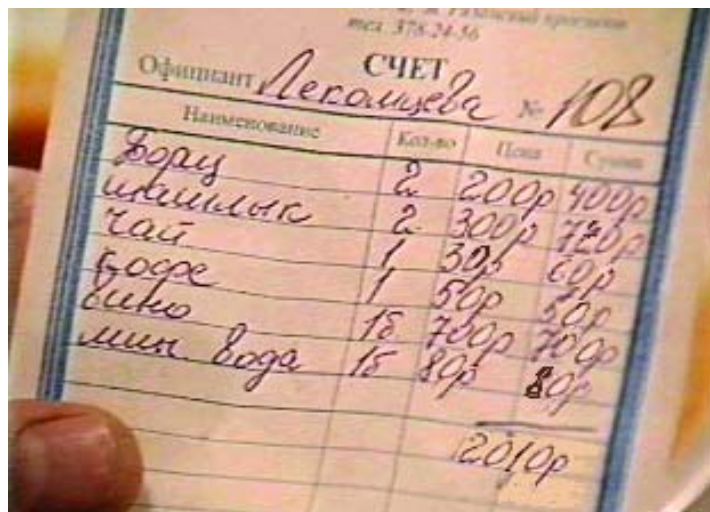 тел. 378-24-56
СЧЕТ
Официант Лекомцева № 108
Наименование Кол-во Цена Сумма
Борщ 2 200р 400р
шашлык 2 300р 720р
Чай 1 30р 60р
Кофе 1 50р 50р
вино 1б 700р 700р
мин вода 1б 80р 80р
2010р